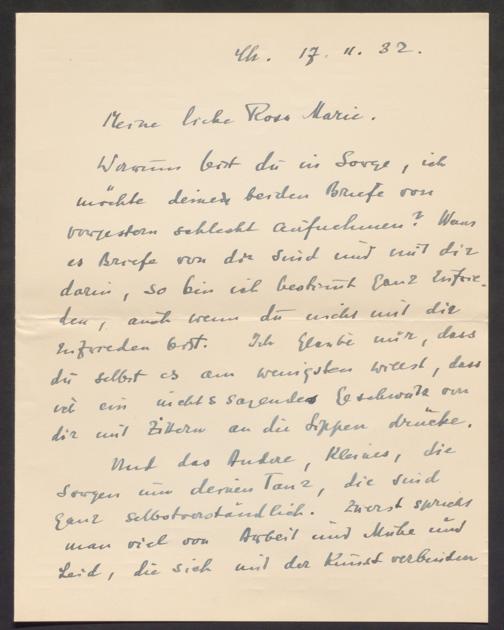 Ch. 17. II. 32.
Meine liebe Rose Marie.
Warum bist du in Sorge, ich
möchte deine beiden Briefe von
vorgestern schlecht aufnehmen? Wenn
es Briefe von dir sind und mit dir
darin, so bin ich bestimmt ganz zufrie-
den, auch wenn du nicht mit dir
zufrieden bist. Ich glaube nur, dass
du selbst es am wenigsten willst, dass
ich ein nichtssagendes Geschwätz von
dir mit Zittern an die Lippen drücke.
Und das Andere, Kleines, die
Sorgen um deinen Tanz, die sind
ganz selbstverständlich. Zuerst spricht
man viel von Arbeit und Mühe und
Leid, die sich mit der Kunst verbinden